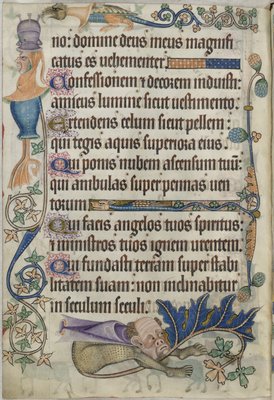 no: domine deus meus magnifi
catus es vehementer
Confessionem et decorem induisti:
amictus lumine sicut vestimento.
Extendens celum sicut pellem:
qui tegis aquis superiora eius.
Qui ponis nubem ascensum tuum:
qui ambulas super pennas ven
torum
Qui facis angelos tuos spiritus:
et ministros tuos ignem urentem.
Qui fundasti terram super stabi
litatem suam: non inclinabitur
in seculum seculi: